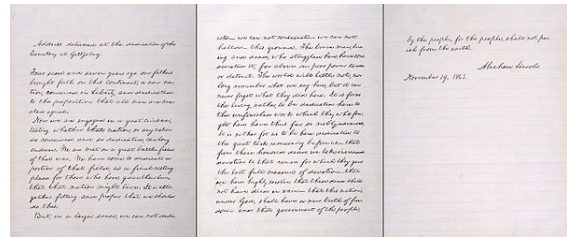 Address delivered at the dedication of the
Cemetery at Gettysburg.
Four score and seven years ago our fathers
brought forth on this continent, a new na-
tion, conceived in Liberty, and dedicated
to the proposition that all men are cre-
ated equal.
Now we are engaged in a great civil war,
testing whether that nation, or any nation
so conceived and so dedicated, can long
endure. We are met on a great battle-field
of that war. We have come to dedicate a
portion of that field, as a final resting
place for those who here gave their lives
that that nation might live. It is alto-
gether fitting and proper that we should
do this.
But, in a larger sense, we can not dedi-
cate— we can not consecrate— we can not
hallow— this ground. The brave men, liv-
ing and dead, who struggled here have con-
secrated it, far above our poor power to add
or detract. The world will little note, nor
long remember what we say here, but it can
never forget what they did here. It is for us
the living, rather, to be dedicated here to
the unfinished work which they who fou-
ght here have thus far so nobly advanced.
It is rather for us to be here dedicated to
the great task remaining before us— that
from these honored dead we take increased
devotion to that cause for which they gave
the last full measure of devotion— that
we here highly resolve that these dead shall
not have died in vain— that this nation,
under God, shall have a new birth of free-
dom— and that government of the people,
by the people, for the people, shall not per-
ish from the earth.
Abraham Lincoln.
November 19, 1863.